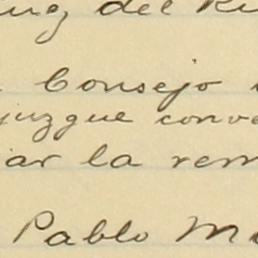 del
Consejo
juzgue conve
iar la rem
Pablo M